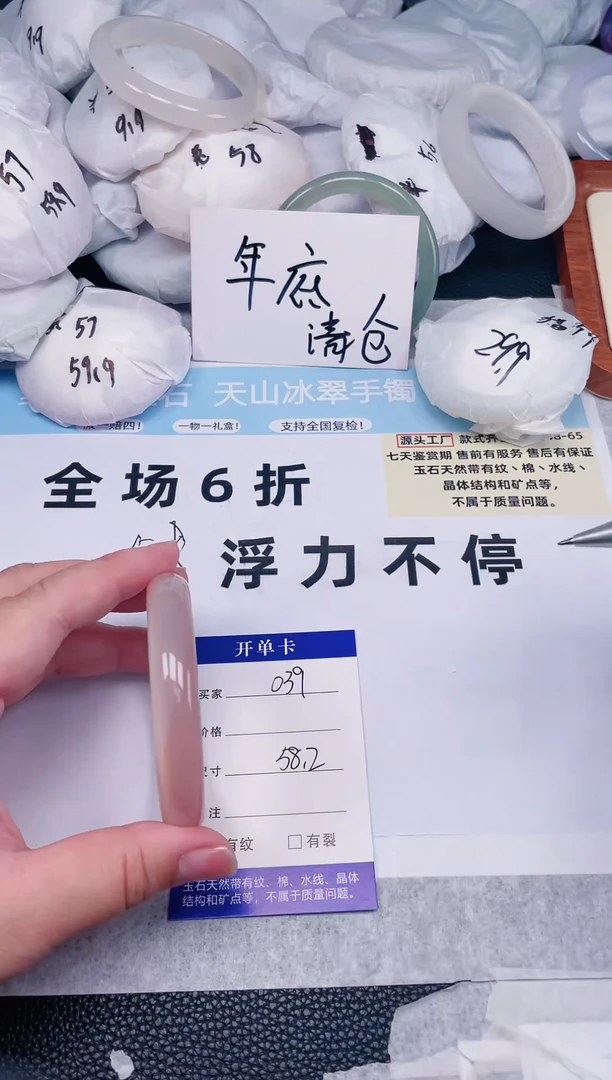 9.9
9.9
57
58.9
58
56
年底
清仓
57
59.9
29.9
石 天山冰翠手镯
一物一礼盒!
支持全国复检!
源头工厂
七天鉴赏期 售前有服务 售后有保证
玉石天然带有纹、棉、水线、
晶体结构和矿点等,
不属于质量问题。
全场6折
浮力不停
开单卡
买家 039
价格
尺寸 58.2
注
有纹 □有裂
玉石天然带有纹、棉、水线、晶体
结构和矿点等,不属于质量问题。